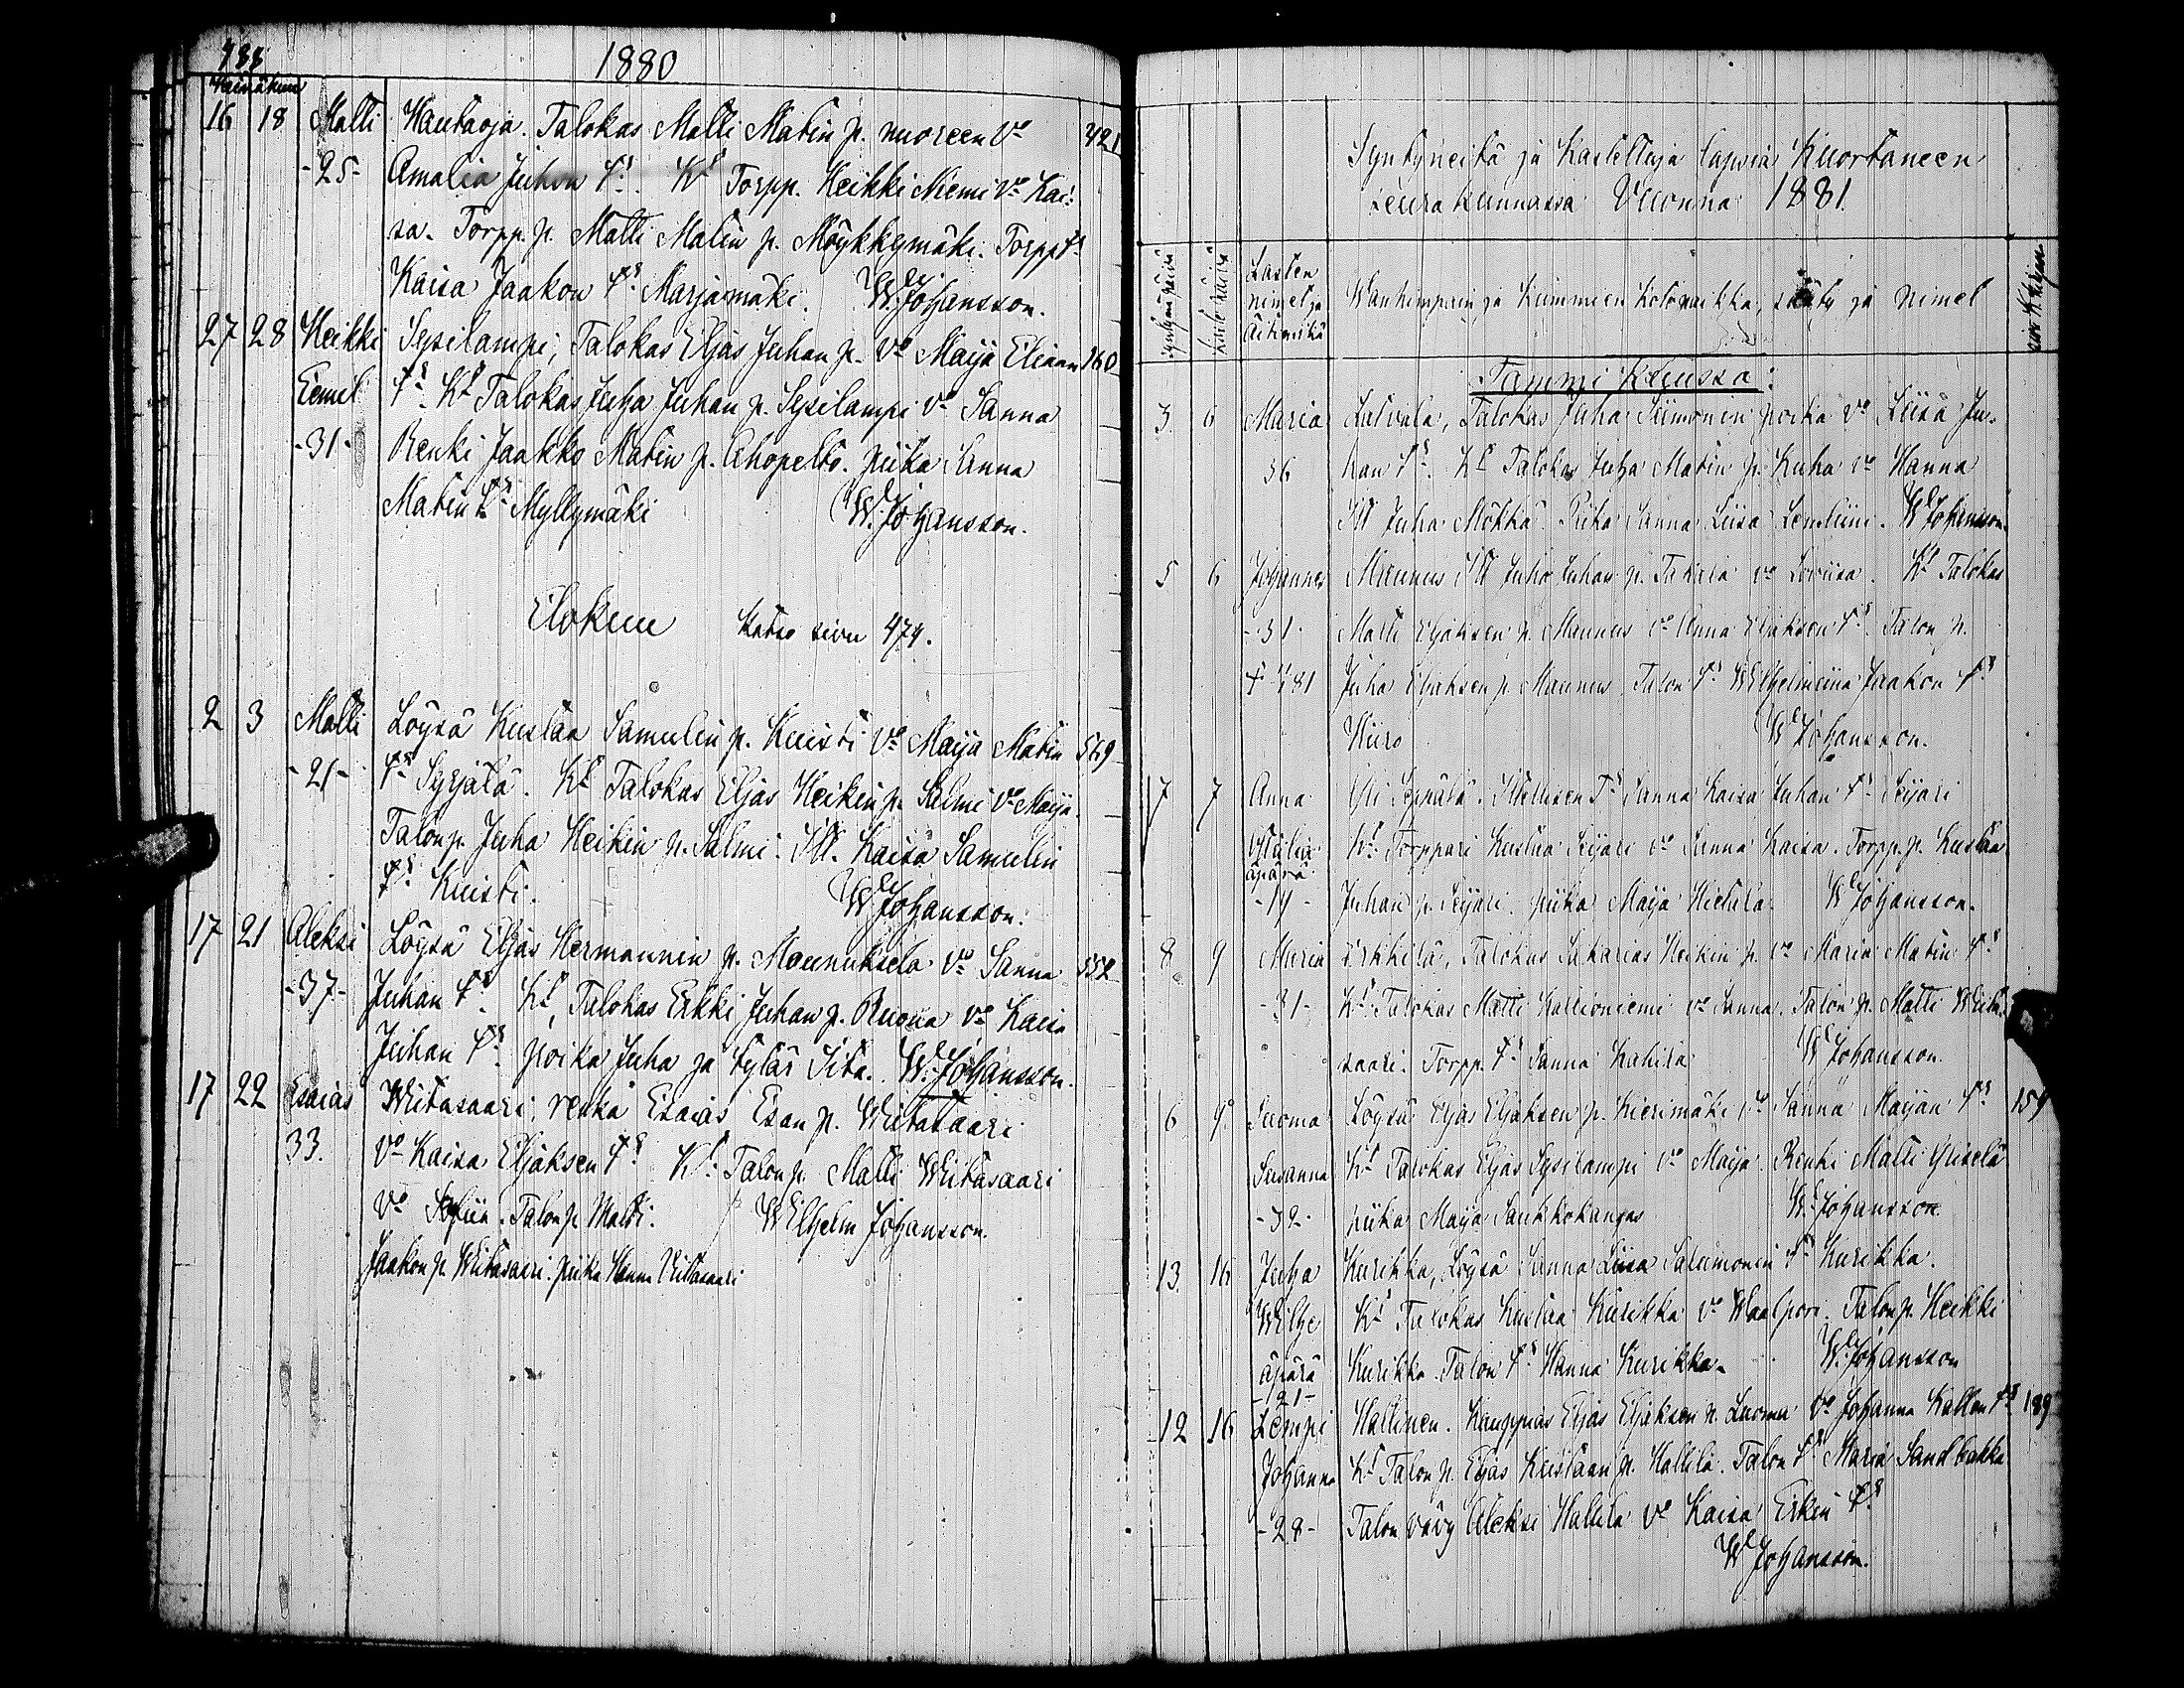 488
1880
Heinäkuu
16 18 Matti Hautaoja. Talokas Matti Matin p. nuoreen Vo 421
-25- Amalia Juhon Ts. Kt Torpp. Heikki Niemi Vo Kai-
sa. Torpp. p. Matti Matin p. Möykkymäki. Torpp ts
Kaisa Jaakon Ts Marjamäki. W. Johansson.
27 28 Heikki Sysilampi; Talokas Eljas Juhan p. Vo Maija Eliaan 160
Eemil Ts. Kt Talokas Juha Juhan p. Sysilampi Vo Sanna
-31- Renki Jaakko Matin p. Ahopelto. piika Sanna
Matin ts Myllymäki W. Johansson.
Elokuu Katso sivu 474.
2 3 Matti Löysä Kustaa Samulin p. Kuisti Vo Maija Matin 569
-21- Ts Syrjälä. Kt Talokas Eljas Heikin p. Salmi Vo Maija.
Talon p. Juha Heikin p. Salmi. Itll. Kaisa Samulin
Ts Kuisti. W Johansson.
17 21 Aleksi Löysä Eljas Hermannin p. Mounuksela Vo Sanna 552
-37- Juhan ts. Kt, Talokas Erkki Juhan p. Ruona Vo Kaisa
Juhan Ts poika Juha ja tytär Iita. W. Johansson.
17 22 Esaias Wiitasaari, renki Esaias Esan p. Wiitasaari
33. Vo Kaisa Eljaksen Ts Kt. Talon p. Matti Wiitasaari
Vo Sofiia. Talon p. Matti. Wilhelm Johansson.
Jaakon p. Wiitasaari. piika Hanna Viitasaari
Syntyneitä ja Kastettuja lapsia Kuortaneen
Seurakunnassa Vuonna 1881.
syntymäpäivä
kastepäivä
Lasten
nimet ja
äitin ikä
Wanhempain ja Kummien kotopaikka, sääty ja nimet
sivu K. Kirjan
Tammi Kuussa:
3 6 Maria Latvala, Talokas Juha Siimonin poika Vo Liisa Ju-
36 han Ts. Kt Talokas Juha Matin p. Kuha Vo Hanna
Itll Juha Mökkä. Piika Sanna Liisa W Johansson.
5 6 Johannes Maunus Itll Juho Juhan p. Vo Loviisa. Kt Talokas
-31- Matti Eljaksen p. Maunus Vo Anna Eljaksen Ts. Talon p.
Juha Eljaksen p. Maunus. Talon Ts Wilhelmiina Jaakon Ts
Wiiro W Johansson.
7 7 Anna Yli Seppälä. Itsellisen Ts Sanna Kaisa Juhan Ts Seijari
äpärä Kt Torppari Kustaa Seijari Vo Sanna Kaisa. Torpp. p. Kustaa
-19- Juhan p. Seijari. piika Maija Hietala. W Johansson.
8 9 Maria Erkkilä, Talokas Sakarias Heikin p. Vo Maria Matin Ts
-31- Kt. Talokas Matti Kallioniemi Vo Sanna. Talon p. Matti Wiita-
saari. Torpp. Ts Sanna W Johansson.
6 9. Suoma Löysä Eljas Eljaksen p. Kierimäki Vo Sanna Maijan Ts 154
Susanna Kt Talokas Eljas Sysilampi Vo Maija. Renki Matti
-32- piika Maija Saukkokangas W. Johansson.
13. 16 Juha Kurikka, Löysä Sanna Liisa Salomonin Ts Kurikka.
Wilhe Kt Talokas Kustaa Kurikka Vo Waalpori. Talon p. Heikki
äpärä Kurikka. Talon Ts Hanna Kurikka. W. Johansson
-21-
12 16 Lempi Hallinen. Kauppias Eljas Eljaksen p. Luoma Vo Johanna Kallen Ts 189
Johanna Kt Talon p. Eljas Kustaan p. Hallila. Talon Ts Maria Sandbakka
-28- Talon vävy Aleksi Hallila Vo Kaisa Erkin Ts
W Johansson.